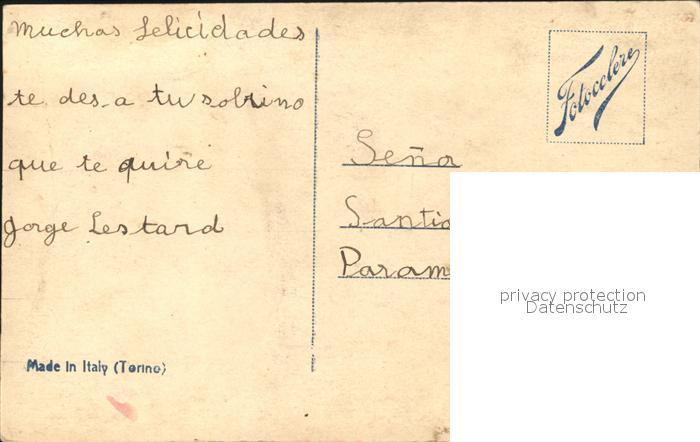 Muchas felicidades
te des a tu sobrino
que te quire
Jorge Lestard
Made in Italy (Torino)
Fotocelere
Seño
Santio
Param
privacy protection
Datenschutz